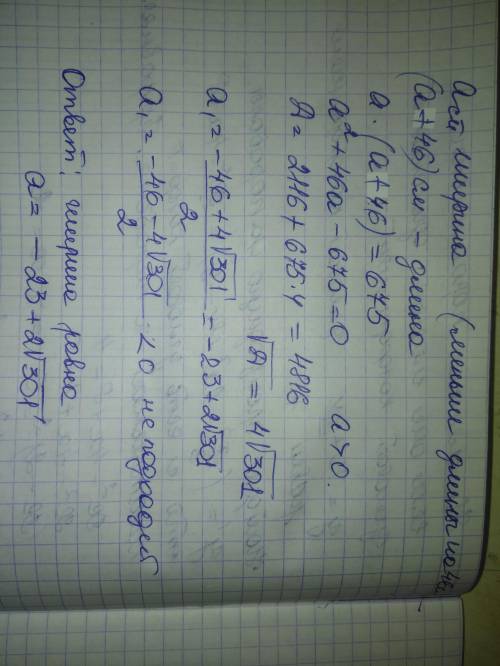 а см ширина (меньше длины на 46
(а + 46) см - длина
а · (а + 46) = 675
а² + 46а - 675 = 0 а > 0.
Д = 2116 + 675·4 = 4816
√Д = 4√301
а₁ = -46 + 4√301 / 2 = -23 + 2√301
а₁ = -46 - 4√301 / 2 < 0 не подходит
Ответ: ширина равна
а = -23 + 2√301